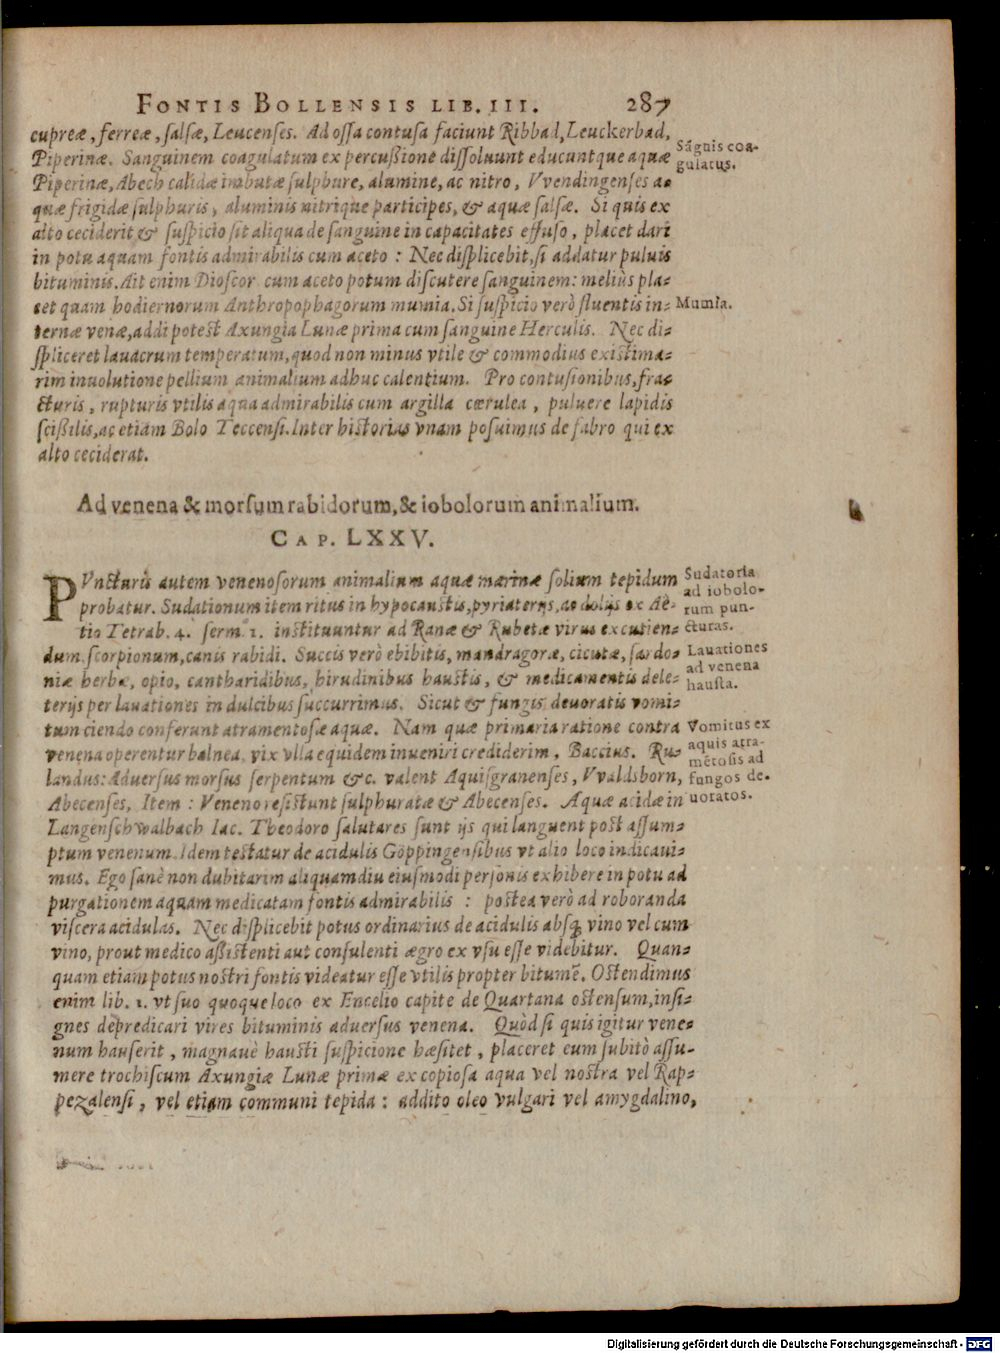 FONTIS BOLLENSIS LIB. III. 287
cupreæ, ferreæ, salsæ, Leucenses. Ad ossa contusa faciunt Ribbad, Leuckerbad,
Piperinæ. Sanguinem coagulatum ex percußione dissoluunt educuntque aquæ
Piperinæ, Abech calidæ imbutæ sulphure, alumine, ac nitro, Vvendingenses a-
quæ frigidæ sulphuris, aluminis nitrique participes, & aquæ salsæ. Si quis ex
alto ceciderit & suspicio sit aliqua de sanguine in capacitates effuso, placet dari
in potu aquam fontis admirabilis cum aceto : Nec displicebit, si addatur puluis
bituminis. Ait enim Dioscor cum aceto potum discutere sanguinem: meliùs pla-
cet quam hodiernorum Anthropophagorum mumia. Si suspicio verò fluentis in-
ternæ venæ, addi potest Axungia Lunæ prima cum sanguine Herculis. Nec di-
spliceret lauacrum temperatum, quod non minus vtile & commodius existima-
rim inuolutione pellium animalium adhuc calentium. Pro contusionibus, fra-
cturis, rupturis vtilis aqua admirabilis cum argilla cærulea, puluere lapidis
scißilis, ac etiam Bolo Teccensi. Inter historias vnam posuimus de fabro qui ex
alto ceciderat.
Sāguis coa-
gulatus.
Mumia.
Ad venena & morsum rabidorum, & iobolorum animalium.
CAP. LXXV.
PVncturis autem venenosorum animalium aquæ marinæ solium tepidum
probatur. Sudationum item ritus in hypocaustis, pyriaterijs, ac dolijs ex Aë-
tio Tetrab. 4. serm. 1. instituuntur ad Ranæ & Rubetæ virus excutien-
dum, scorpionum, canis rabidi. Succis verò ebibitis, mandragoræ, cicutæ, sardo-
niæ herbæ, opio, cantharidibus, hirudinibus haustis, & medicamentis dele-
terijs per lauationes in dulcibus succurrimus. Sicut & fungis deuoratis vomi-
tum ciendo conferunt atramentosæ aquæ. Nam quæ primaria ratione contra
venena operentur balnea, vix vlla equidem inueniri crediderim, Baccius. Ru-
landus: Aduersus morsus serpentum &c. valent Aquisgranenses, Vvaldsborn,
Abecenses, Item : Veneno resistunt sulphuratæ & Abecenses. Aquæ acidæ in
Langenschwalbach Iac. Theodoro salutares sunt ijs qui languent post assum-
ptum venenum. Idem testatur de acidulis Göppingensibus vt alio loco indicaui-
mus. Ego sanè non dubitarim aliquamdiu eiusmodi personis exhibere in potu ad
purgationem aquam medicatam fontis admirabilis : postea verò ad roboranda
viscera acidulas. Nec displicebit potus ordinarius de acidulis absq; vino vel cum
vino, prout medico aßistenti aut consulenti ægro ex vsu esse videbitur. Quan-
quam etiam potus nostri fontis videatur esse vtilis propter bitumē. Ostendimus
enim lib. 1. vt suo quoque loco ex Encelio capite de Quartana ostensum, insi-
gnes depredicari vires bituminis aduersus venena. Quòd si quis igitur vene-
num hauserit, magnauè hausti suspicione hæsitet, placeret eum subitò assu-
mere trochiscum Axungiæ Lunæ primæ ex copiosa aqua vel nostra vel Rap-
pezalensi, vel etiam communi tepida : addito oleo vulgari vel amygdalino,
Sudatoria
ad iobolo-
rum pun-
cturas.
Lauationes
ad venena
hausta.
Vomitus ex
aquis atra-
mētosis ad
fungos de-
uoratos.
Digitalisierung gefördert durch die Deutsche Forschungsgemeinschaft - DFG